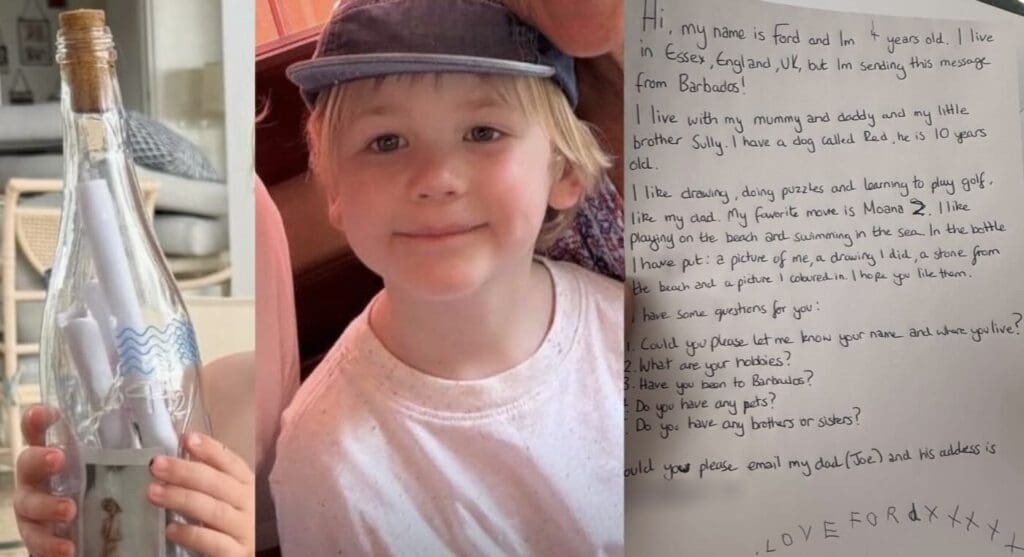 Hi, my name is Ford and Im 4 years old. I live
in Essex, England, UK, but Im sending this message
from Barbados!
I live with my mummy and daddy and my little
brother Sully. I have a dog called Red, he is 10 years
old.
I like drawing, doing puzzles and learning to play golf,
like my dad. My favorite movie is Moana 2. I like
playing on the beach and swimming in the sea. In the bottle
I have put: a picture of me, a drawing I did, a stone from
the beach and a picture I coloured in. I hope you like them.
I have some questions for you:
1. Could you please let me know your name and where you live?
2. What are your hobbies?
3. Have you been to Barbados?
Do you have any pets?
Do you have any brothers or sisters?
ould you please email my dad (Joe) and his address is
LOVE FORd X X X X X